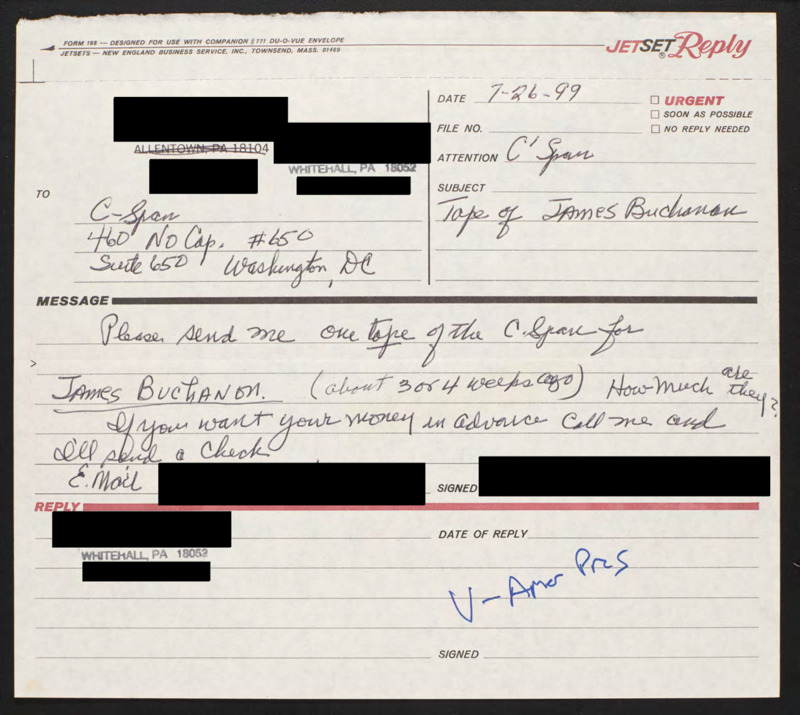 FORM 188 — DESIGNED FOR USE WITH COMPANION #771 DU-O-VUE ENVELOPE
JETSETS — NEW ENGLAND BUSINESS SERVICE, INC., TOWNSEND, MASS. 01469
JETSET Reply
®
DATE 7-26-99
URGENT
SOON AS POSSIBLE
FILE NO.
NO REPLY NEEDED
ALLENTOWN, PA 18104
WHITEHALL, PA 18052
ATTENTION C'Span
SUBJECT
Tape of James Buchanon
TO
C-Span
460 No Cap. #650
Suite 650 Washington, DC
MESSAGE
Please send me one tape of the C.Span for
James Buchanon. (about 3 or 4 weeks ago) How Much are they?
If you want your money in advance call me and
I'll send a check
E.Mail
SIGNED
REPLY
WHITEHALL, PA 18052
DATE OF REPLY
V - Amer Pres
SIGNED